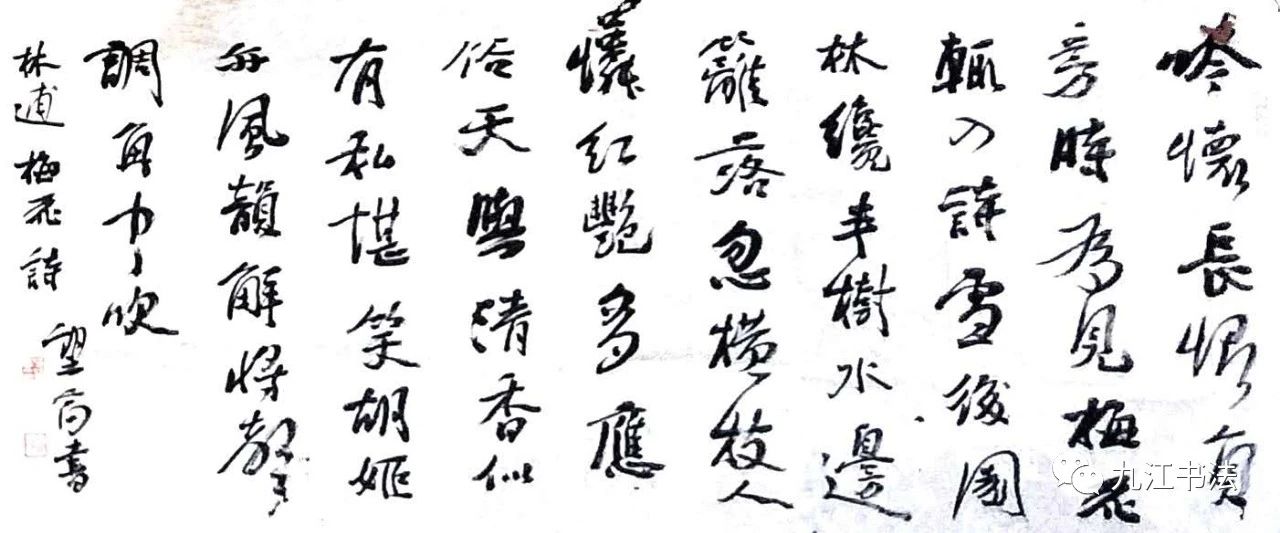 吟懷長恨負
芳時為見梅花
輒入詩雪後園
林纔半樹水邊
籬落忽橫枝人
憐紅艷多應
俗天與清香似
有私堪笑胡姬
亦風韻解將聲
調角中吹
林逋梅花詩
望書
九江书法